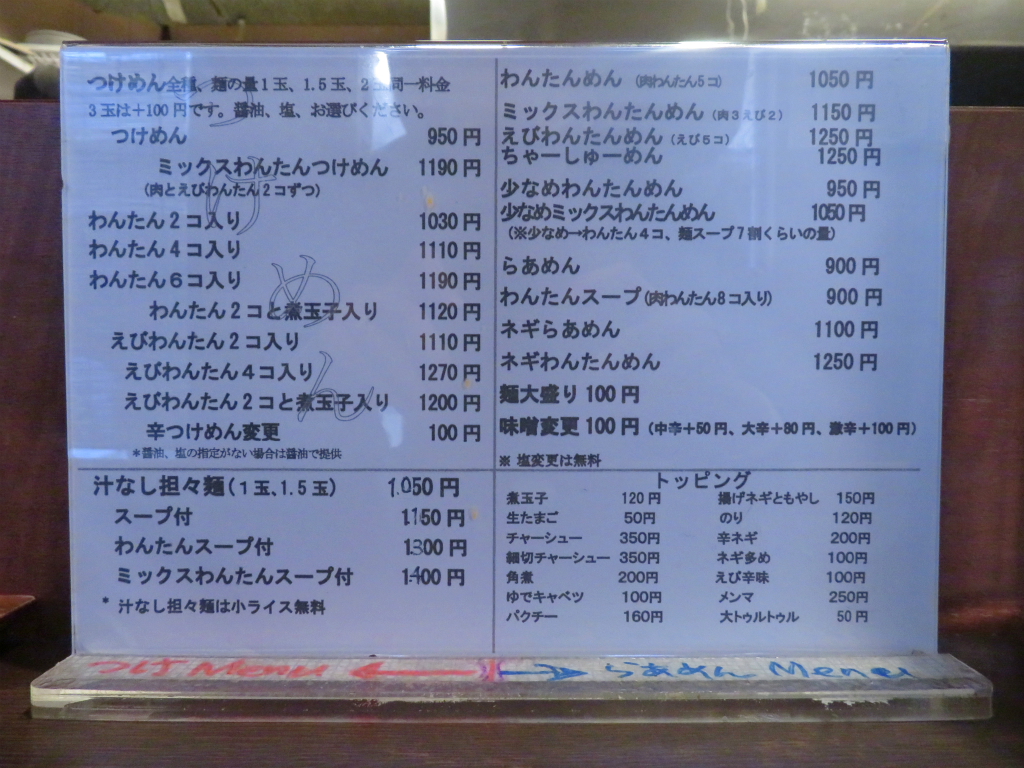 つけめん全種、麺の量1玉、1.5玉、2玉同一料金
3玉は＋100円です。醤油、塩、お選びください。
つけめん 950円
ミックスわんたんつけめん 1190円
(肉とえびわんたん2コずつ)
わんたん2コ入り 1030円
わんたん4コ入り 1110円
わんたん6コ入り 1190円
わんたん2コと煮玉子入り 1120円
えびわんたん2コ入り 1110円
えびわんたん4コ入り 1270円
えびわんたん2コと煮玉子入り 1200円
辛つけめん変更 100円
*醤油、塩の指定がない場合は醤油で提供
つけめん
汁なし担々麺(1玉、1.5玉) 1.050円
スープ付 1150円
わんたんスープ付 1300円
ミックスわんたんスープ付 1400円
* 汁なし担々麺は小ライス無料
わんたんめん (肉わんたん5コ) 1050円
ミックスわんたんめん (肉3えび2) 1150円
えびわんたんめん (えび5コ) 1250円
ちゃーしゅーめん 1250円
少なめわんたんめん 950円
少なめミックスわんたんめん 1050円
(※少なめ→わんたん4コ、麺スープ7割くらいの量)
らあめん 900円
わんたんスープ(肉わんたん8コ入り) 900円
ネギらあめん 1100円
ネギわんたんめん 1250円
麺大盛り 100円
味噌変更 100円 (中辛＋50円、大辛＋80円、激辛＋100円)
※ 塩変更は無料
トッピング
煮玉子 120円 揚げネギともやし 150円
生たまご 50円 のり 120円
チャーシュー 350円 辛ネギ 200円
細切チャーシュー 350円 ネギ多め 100円
角煮 200円 えび辛味 100円
ゆでキャベツ 100円 メンマ 250円
パクチー 160円 大トゥルトゥル 50円
つけ Menu ← → らあめん Menu